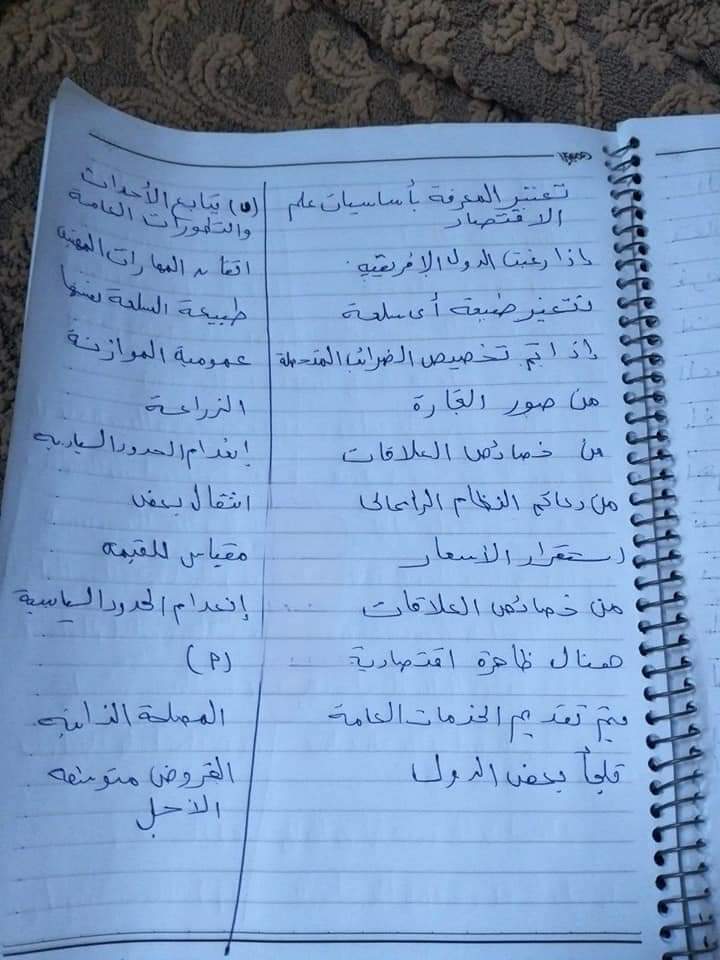 تعتبر المعرفة بأساسيات علم (ں) يتابع الأحداث
الاقتصاد والتطورات العامة
إذا رغبت الدول الإفريقيه اتقان المهارات المهنيه
تتغير طبيعة أى سلعة طبيعة السلعة نفسها
إذا تم تخصيص الضرائب المتحصلة عمومية الموازنة
من صور التجارة الزراعة
من خصائص العلاقات إنعدام الحدود السياسيه
من دعائم النظام الراسمالى انتقال بعض
استقرار الأسعار مقياس للقيمه
من خصائص العلاقات إنعدام الحدود السياسية
هنال ظاهرة اقتصادية (م)
فيتم تقديم الخدمات العامة المصلحة الذاتيه
تلجأ بعض الدول القروض متوسطه
الأجل